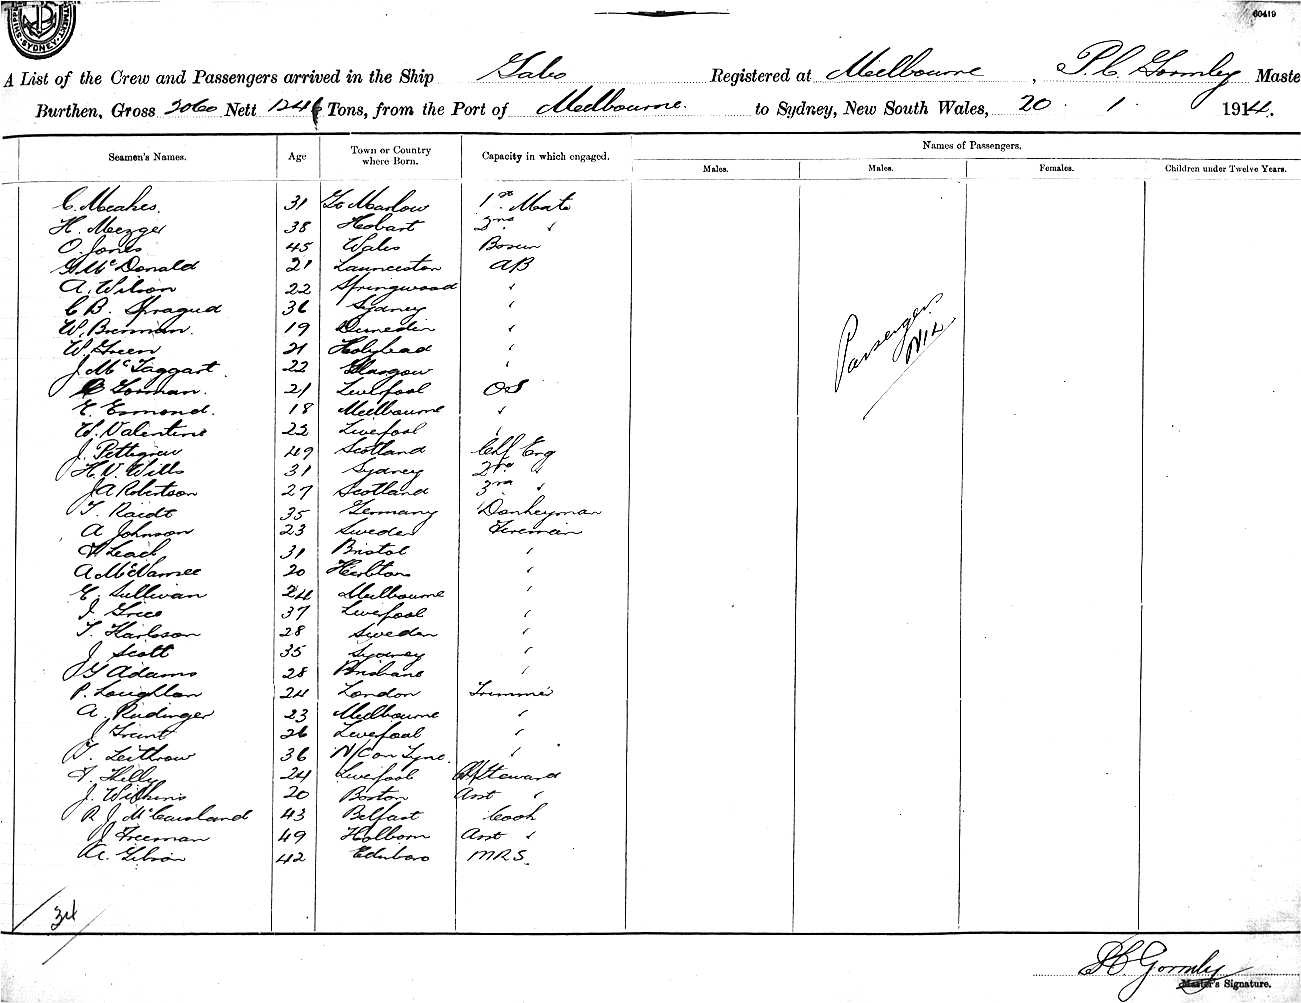 SYDNEY
60419
A List of the Crew and Passengers arrived in the Ship Gabo Registered at Melbourne, P. C. Gormley Maste
Burthen, Gross 2060 Nett 1246 Tons, from the Port of Melbourne. to Sydney, New South Wales, 20. 1. 1914.
Seamen's Names. Age Town or Country where Born. Capacity in which engaged. Names of Passengers.
Males. Males. Females. Children under Twelve Years.
C. Meakes. 31 Gt Marlow 1st Mate
H. Mezger 38 Hobart 2nd "
O. Jones 45 Wales Bosun
McDonald 21 Launceston AB
A. Wilson 22 Springwood "
C B. Spragud 36 Sydney "
W. Brennan. 19 Dunedin "
W. Green 21 Holyhead "
J. McTaggart. 22 Glasgow "
Gorman. 21 Liverpool OS
E. Esmond. 18 Melbourne "
W. Valentine 22 Liverpool "
J. Pettigrew 49 Scotland Chf Eng
H. V. Wills 31 Sydney 2nd "
J A Robertson 27 Scotland 3rd "
T. Raidt 35 Germany Donkeyman
A Johnson 23 Sweden Fireman
Leach 31 Bristol "
A McNamee 20 "
E. Sullivan 24 Melbourne "
J. Grice 37 Liverpool "
T. 28 Sweden "
J. Scott 35 Sydney "
G Adams 28 Brisbane "
P. Loughlan 24 London Trimmer
A. Rudinger 23 Melbourne "
J Grant 26 Liverpool "
T. Leithrow 36 N/C on Tyne. "
24 Liverpool Ch/Steward
J. Wilkins 20 Boston Asst "
R J McCausland 43 Belfast Cook
J Freeman 49 Holborn Asst "
Gibson 42 Edinboro MRS.
Passengers
Nil
34
P C. Gormley
Master's Signature.